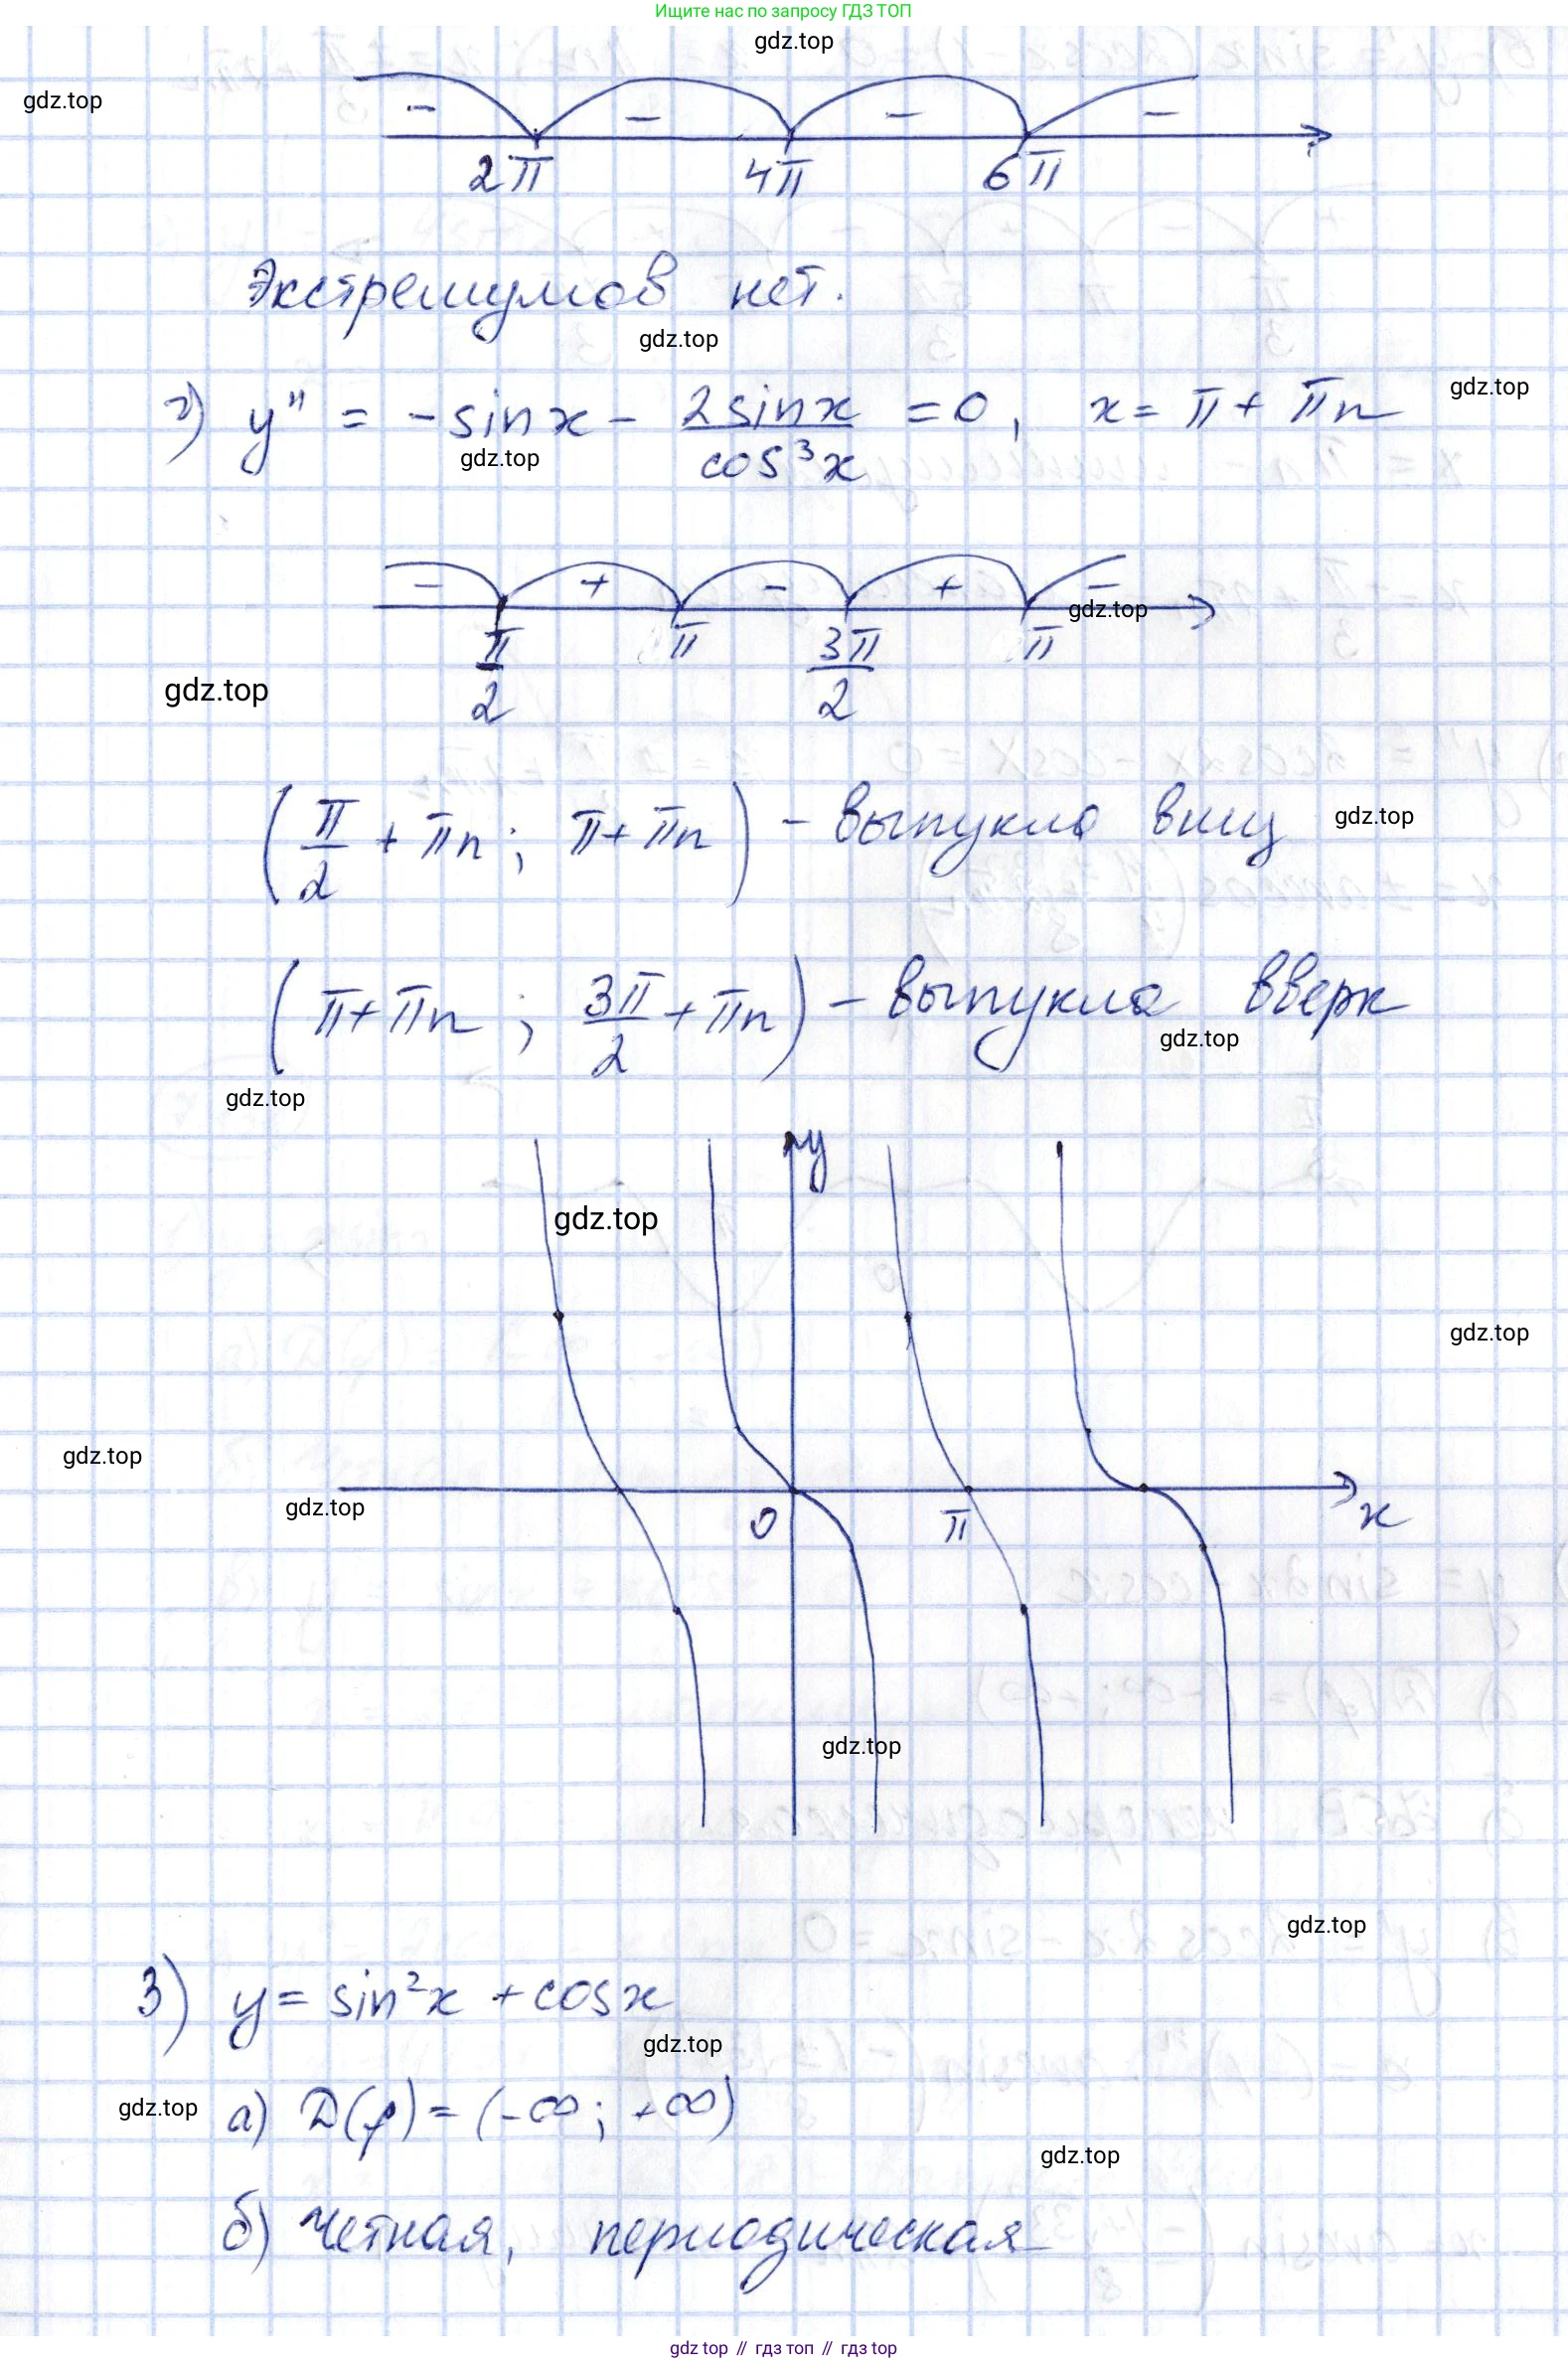 Ищите нас по запросу ГДЗ ТОП
gdz.top
gdz.top
− − − −
2π 4π 6π
Экстремумов нет.
gdz.top
г) y'' = -sinx - 2sinx/cos³x = 0, x = π + πn
gdz.top
gdz.top
− + − + −
gdz.top
π/2 π 3π/2 π
gdz.top
(π/2 + πn; π + πn) - выпукла вниз
gdz.top
(π + πn; 3π/2 + πn) - выпукла вверх
gdz.top
gdz.top
y
gdz.top
gdz.top
gdz.top
gdz.top
0 π x
gdz.top
gdz.top
3) y = sin²x + cosx
gdz.top
gdz.top
а) D(f) = (-∞; +∞)
gdz.top
б) Четная, периодическая
gdz.top // гдз топ // gdz.top